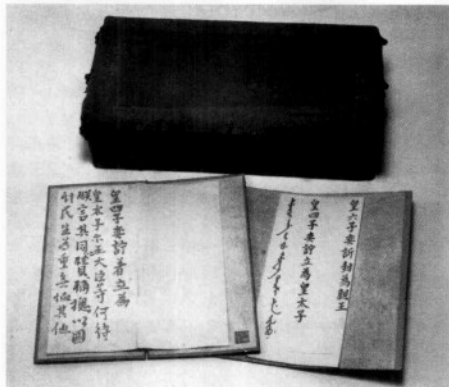 皇六子奕訢封為親王
皇四子奕詝立為皇太子
皇四子奕詝着立為
皇太子尔王大臣等何待
朕言其同心贊輔總以國
計民生為重無恤其他